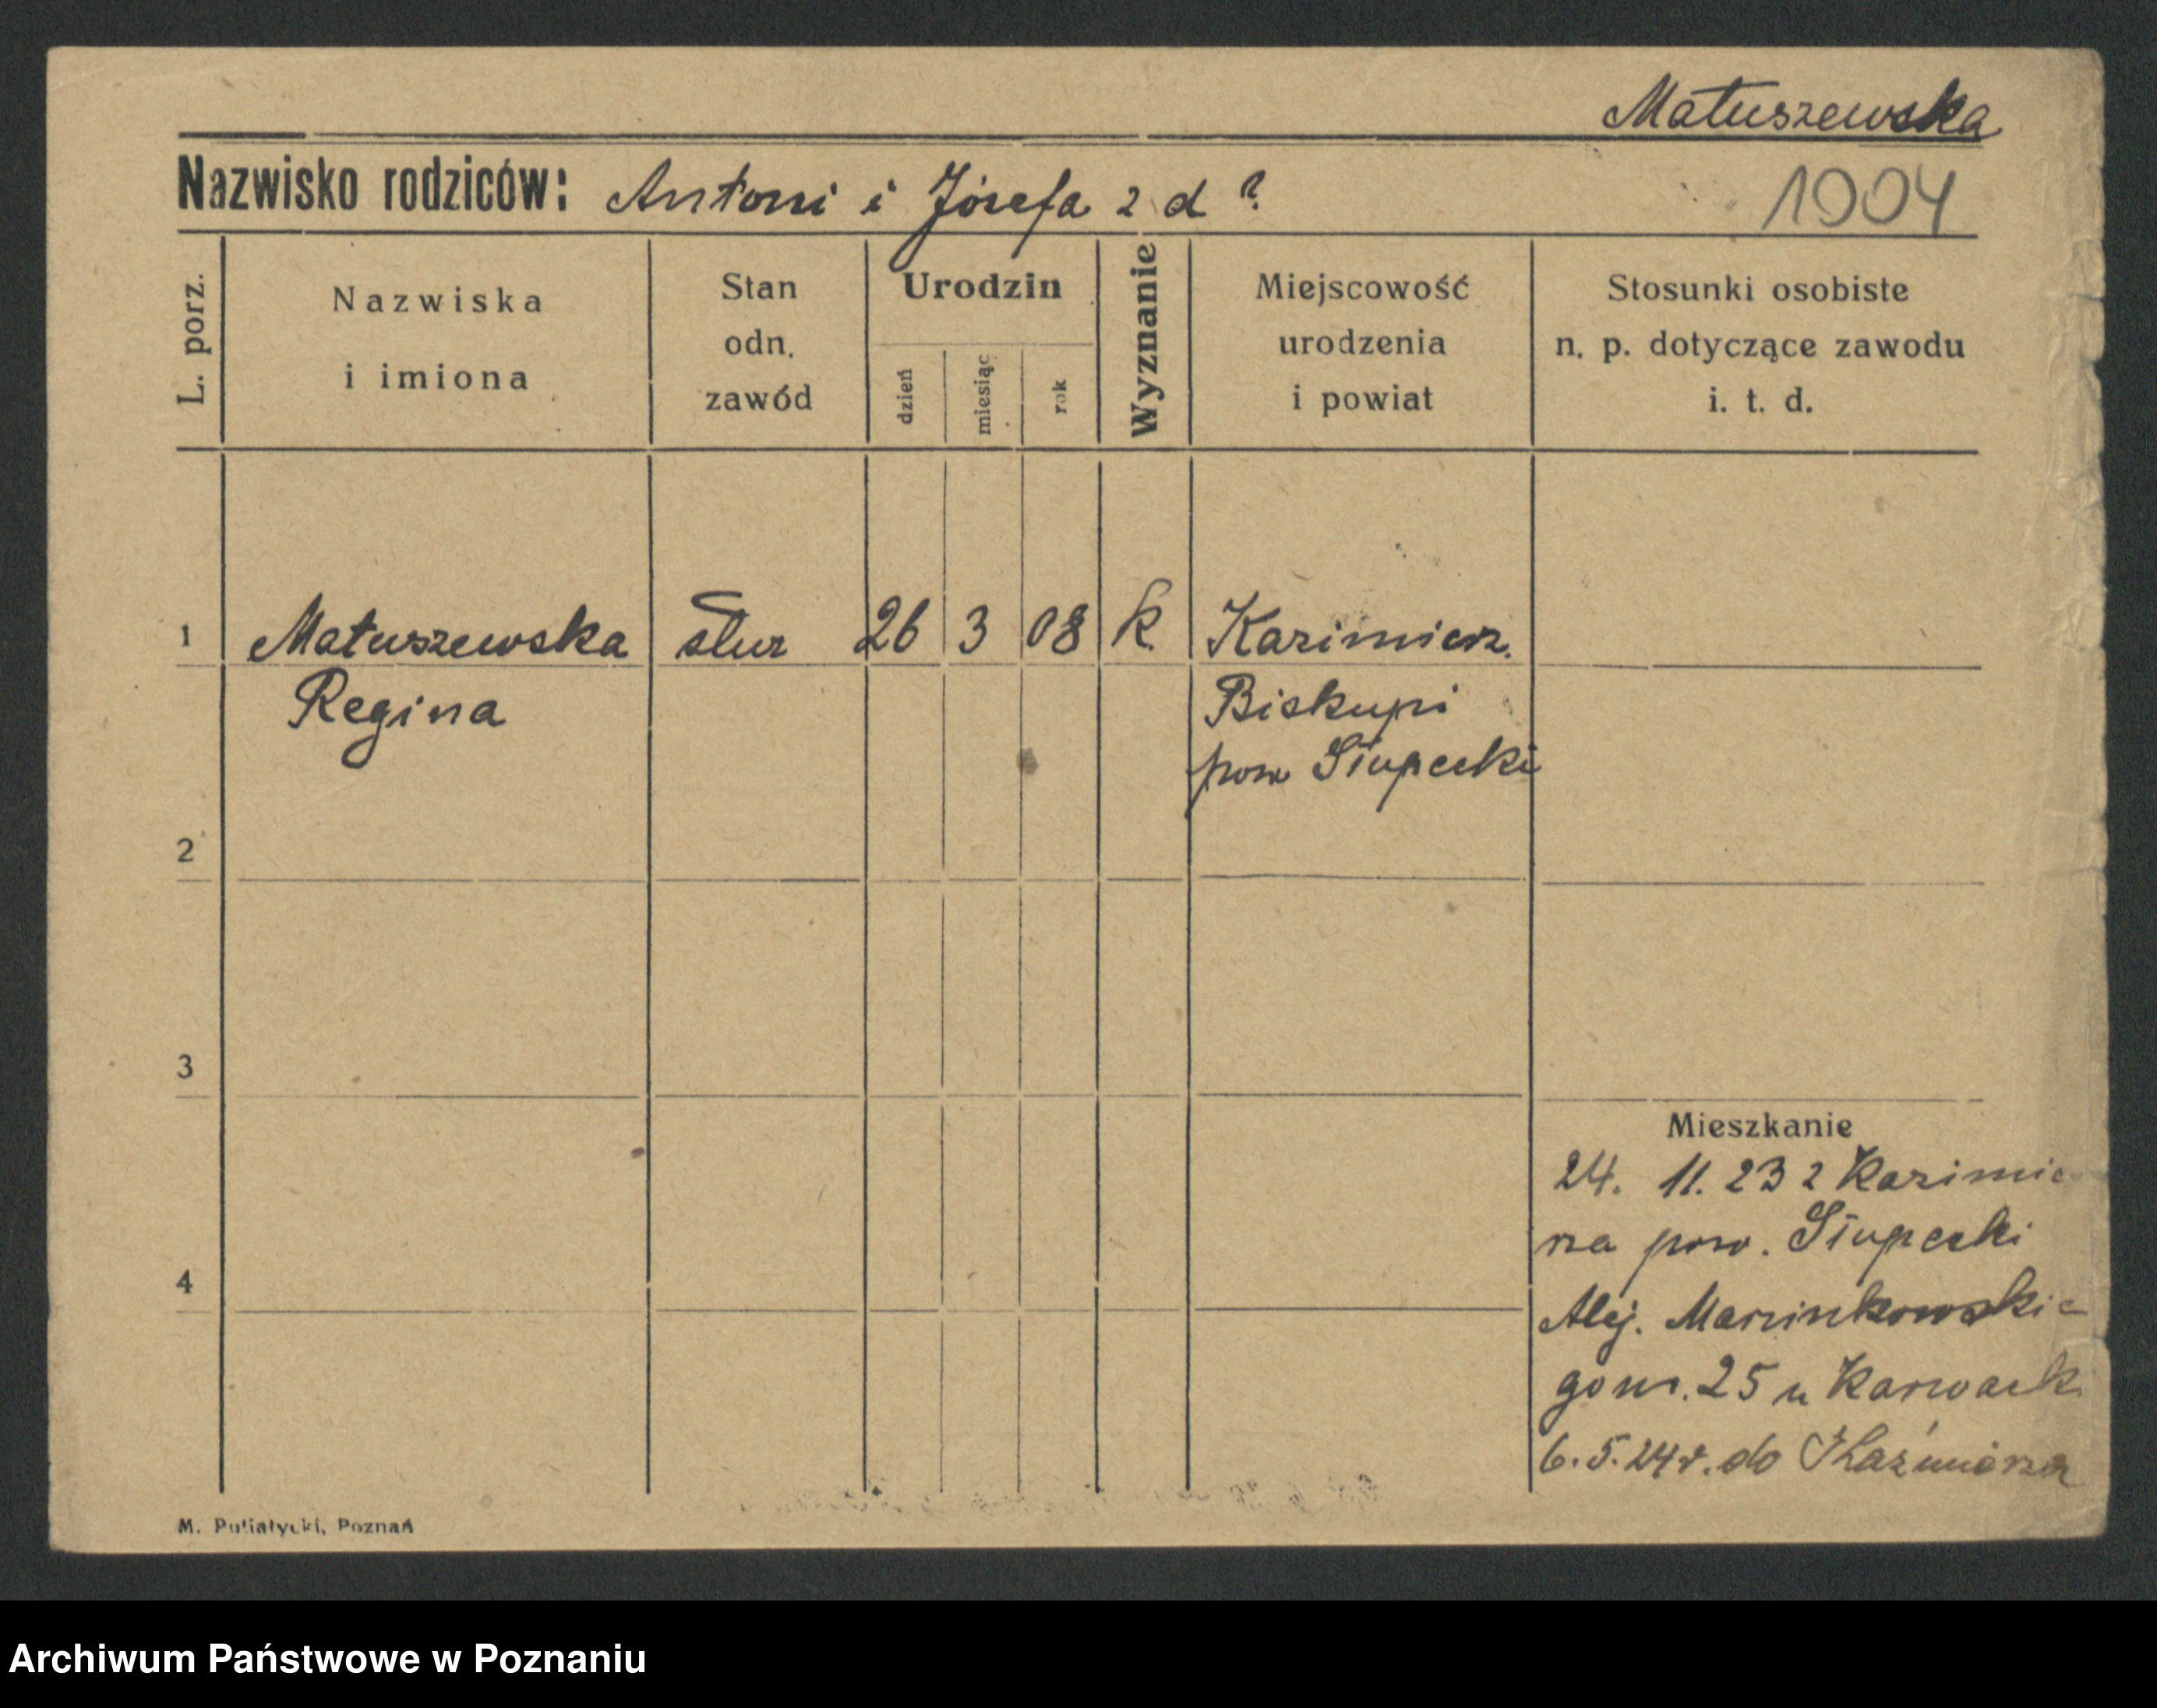 Matuszewska
Nazwisko rodziców: Antoni i Józefa z d ?
1904
L. porz.
Nazwiska
i imiona
Stan
odn.
zawód
Urodzin
dzień
miesiąc
rok
Wyznanie
Miejscowość
urodzenia
i powiat
Stosunki osobiste
n. p. dotyczące zawodu
i. t. d.
1 Matuszewska służ 26 3 08 k Kazimierz.
Regina
Biskupi
pow Słupecki
2
3
4
Mieszkanie
24. 11. 23 z Kazimie
rza pow. Słupecki
Alej. Marcinkowskie
go nr. 25 u Karwack
6.5.24r. do Kaźmierza
M. Putiatycki, Poznań
Archiwum Państwowe w Poznaniu